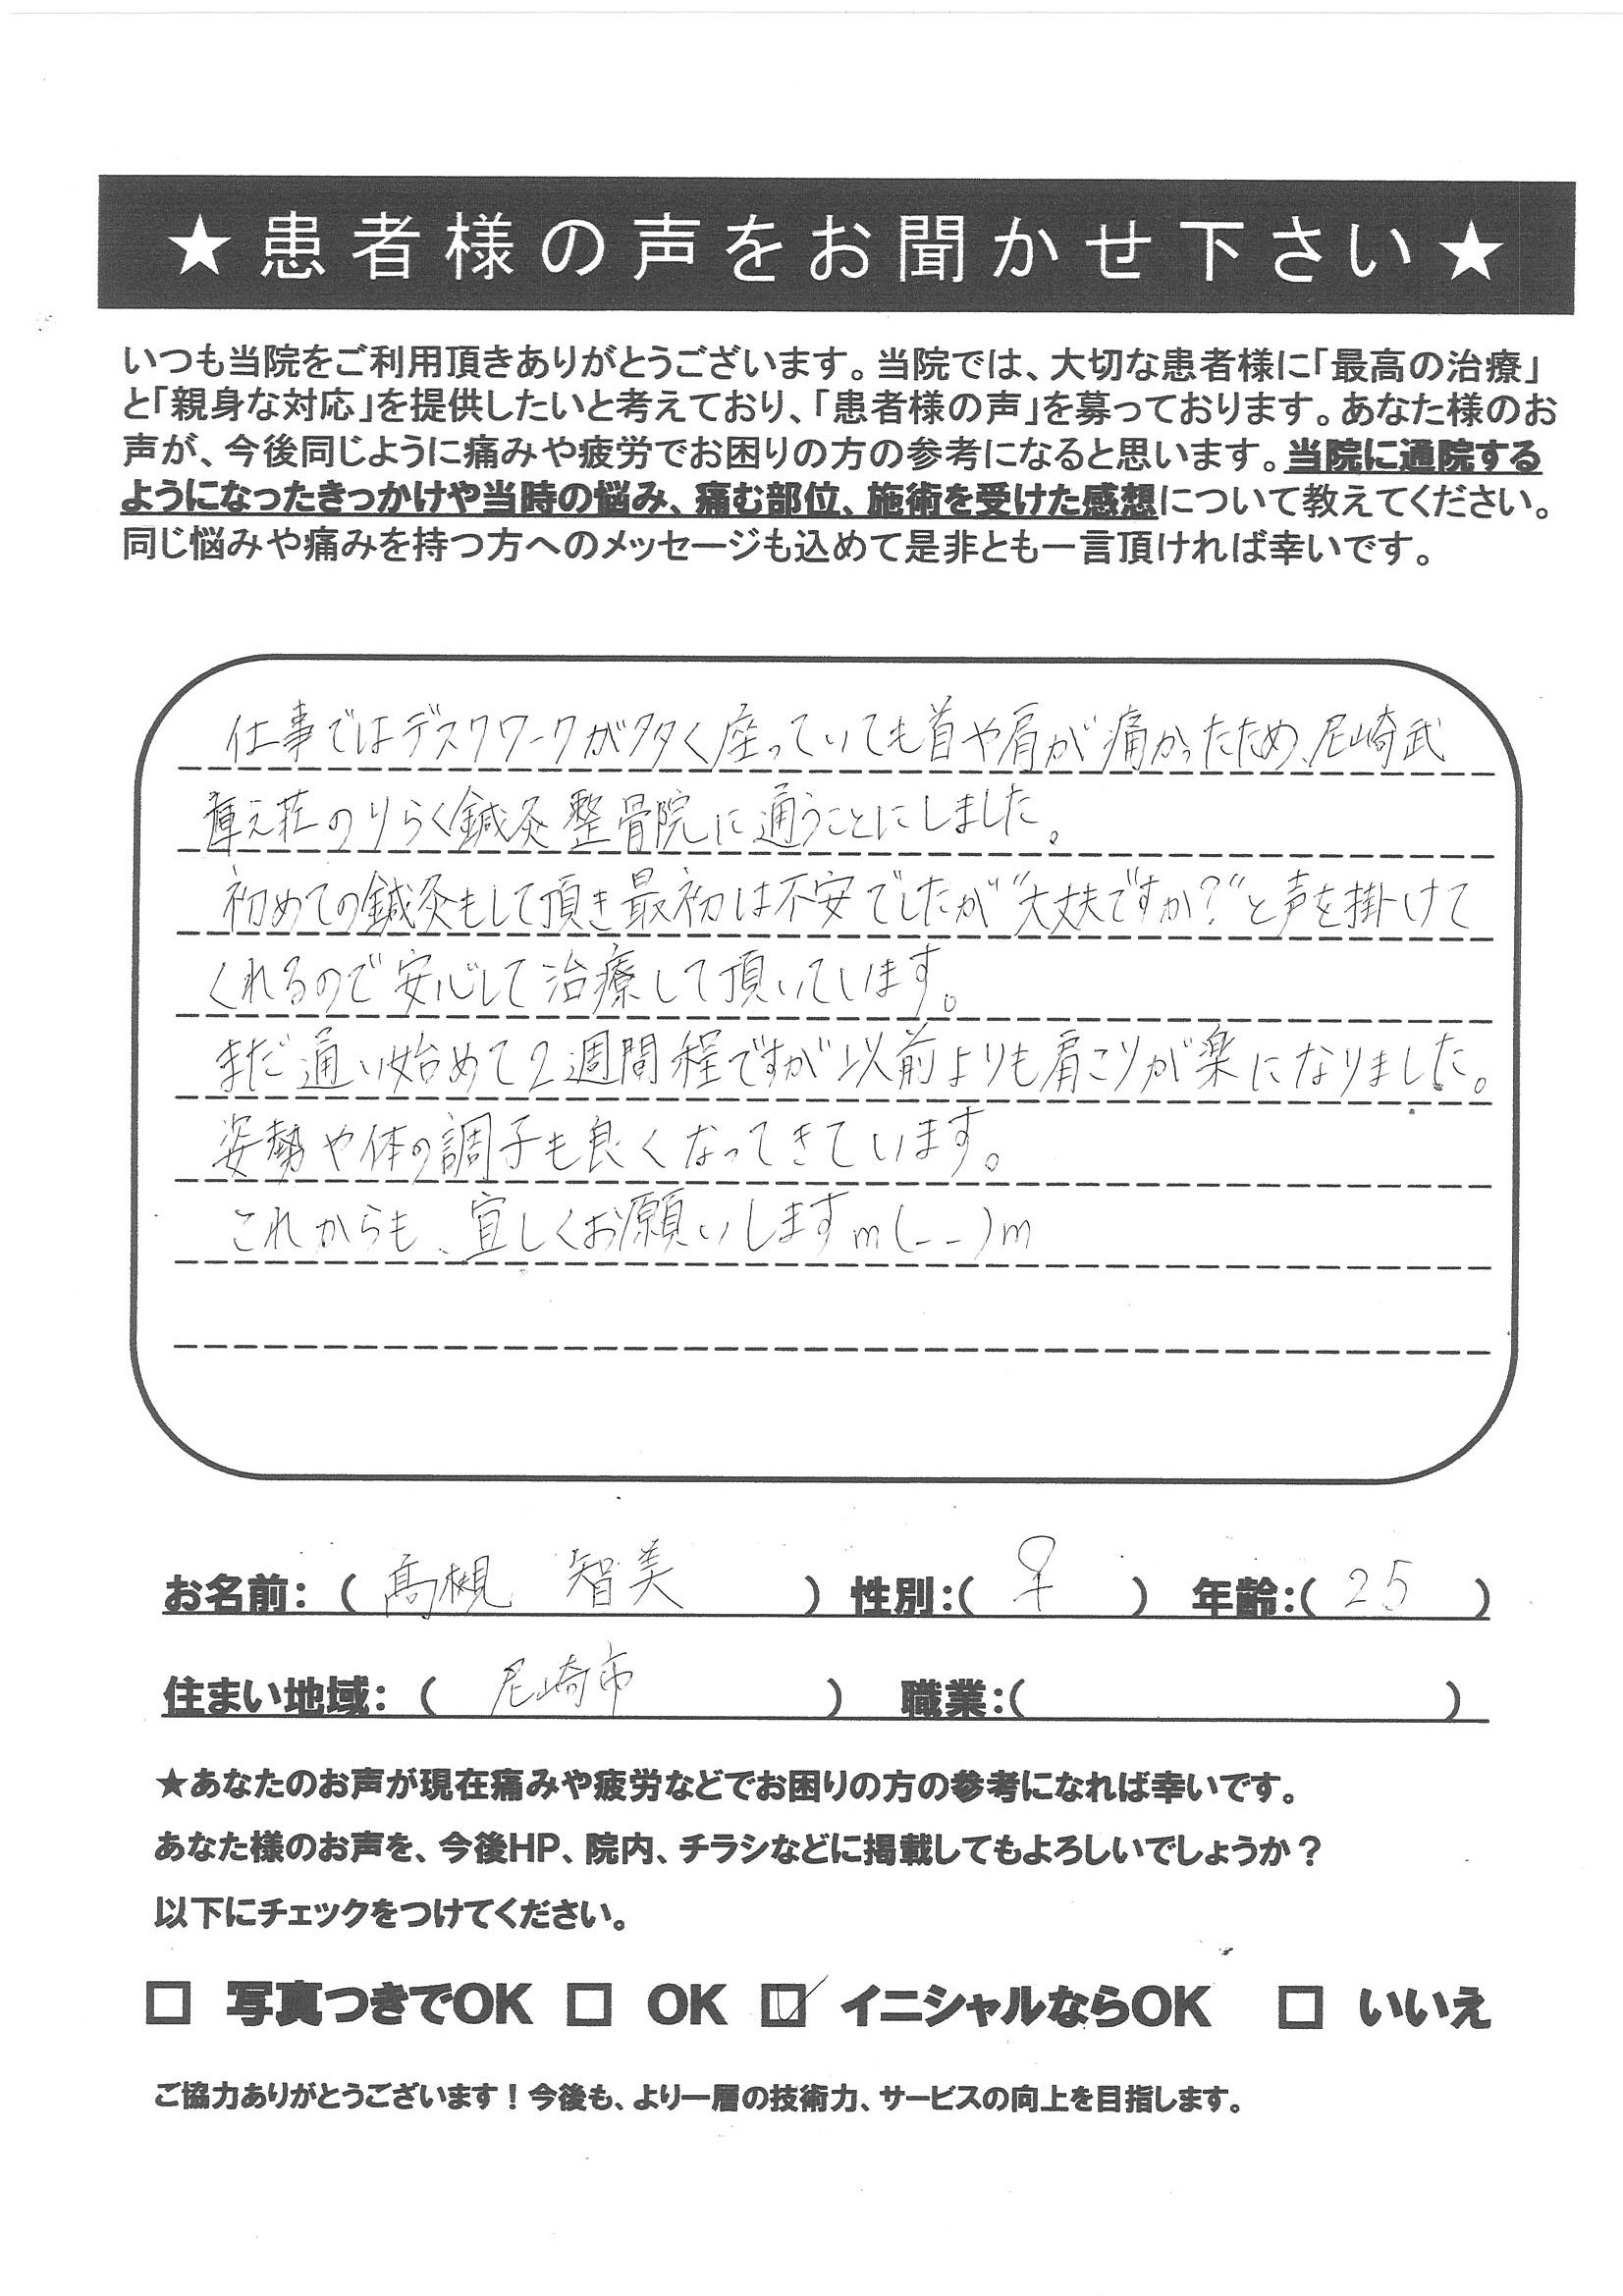 ★患者様の声をお聞かせ下さい★
いつも当院をご利用頂きありがとうございます。当院では、大切な患者様に「最高の治療」
と「親身な対応」を提供したいと考えており、「患者様の声」を募っております。あなた様のお
声が、今後同じように痛みや疲労でお困りの方の参考になると思います。当院に通院する
ようになったきっかけや当時の悩み、痛む部位、施術を受けた感想について教えてください。
同じ悩みや痛みを持つ方へのメッセージも込めて是非とも一言頂ければ幸いです。
仕事ではデスクワークが多く座っていても首や肩が痛かったため、尼崎武
庫之荘のりらく鍼灸整骨院に通うことにしました。
初めての鍼灸もして頂き最初は不安でしたが"大丈夫ですか?"と声を掛けて
くれるので安心して治療して頂いています。
まだ通い始めて2週間程ですが以前よりも肩こりが楽になりました。
姿勢や体の調子も良くなってきています。
これからも、宜しくお願いしますm(--)m
お名前:(髙槻 智美) 性別:(♀) 年齢:(25)
住まい地域:(尼崎市) 職業:( )
★あなたのお声が現在痛みや疲労などでお困りの方の参考になれば幸いです。
あなた様のお声を、今後HP、院内、チラシなどに掲載してもよろしいでしょうか?
以下にチェックをつけてください。
□ 写真つきでOK □ OK ☑ イニシャルならOK □ いいえ
ご協力ありがとうございます!今後も、より一層の技術力、サービスの向上を目指します。